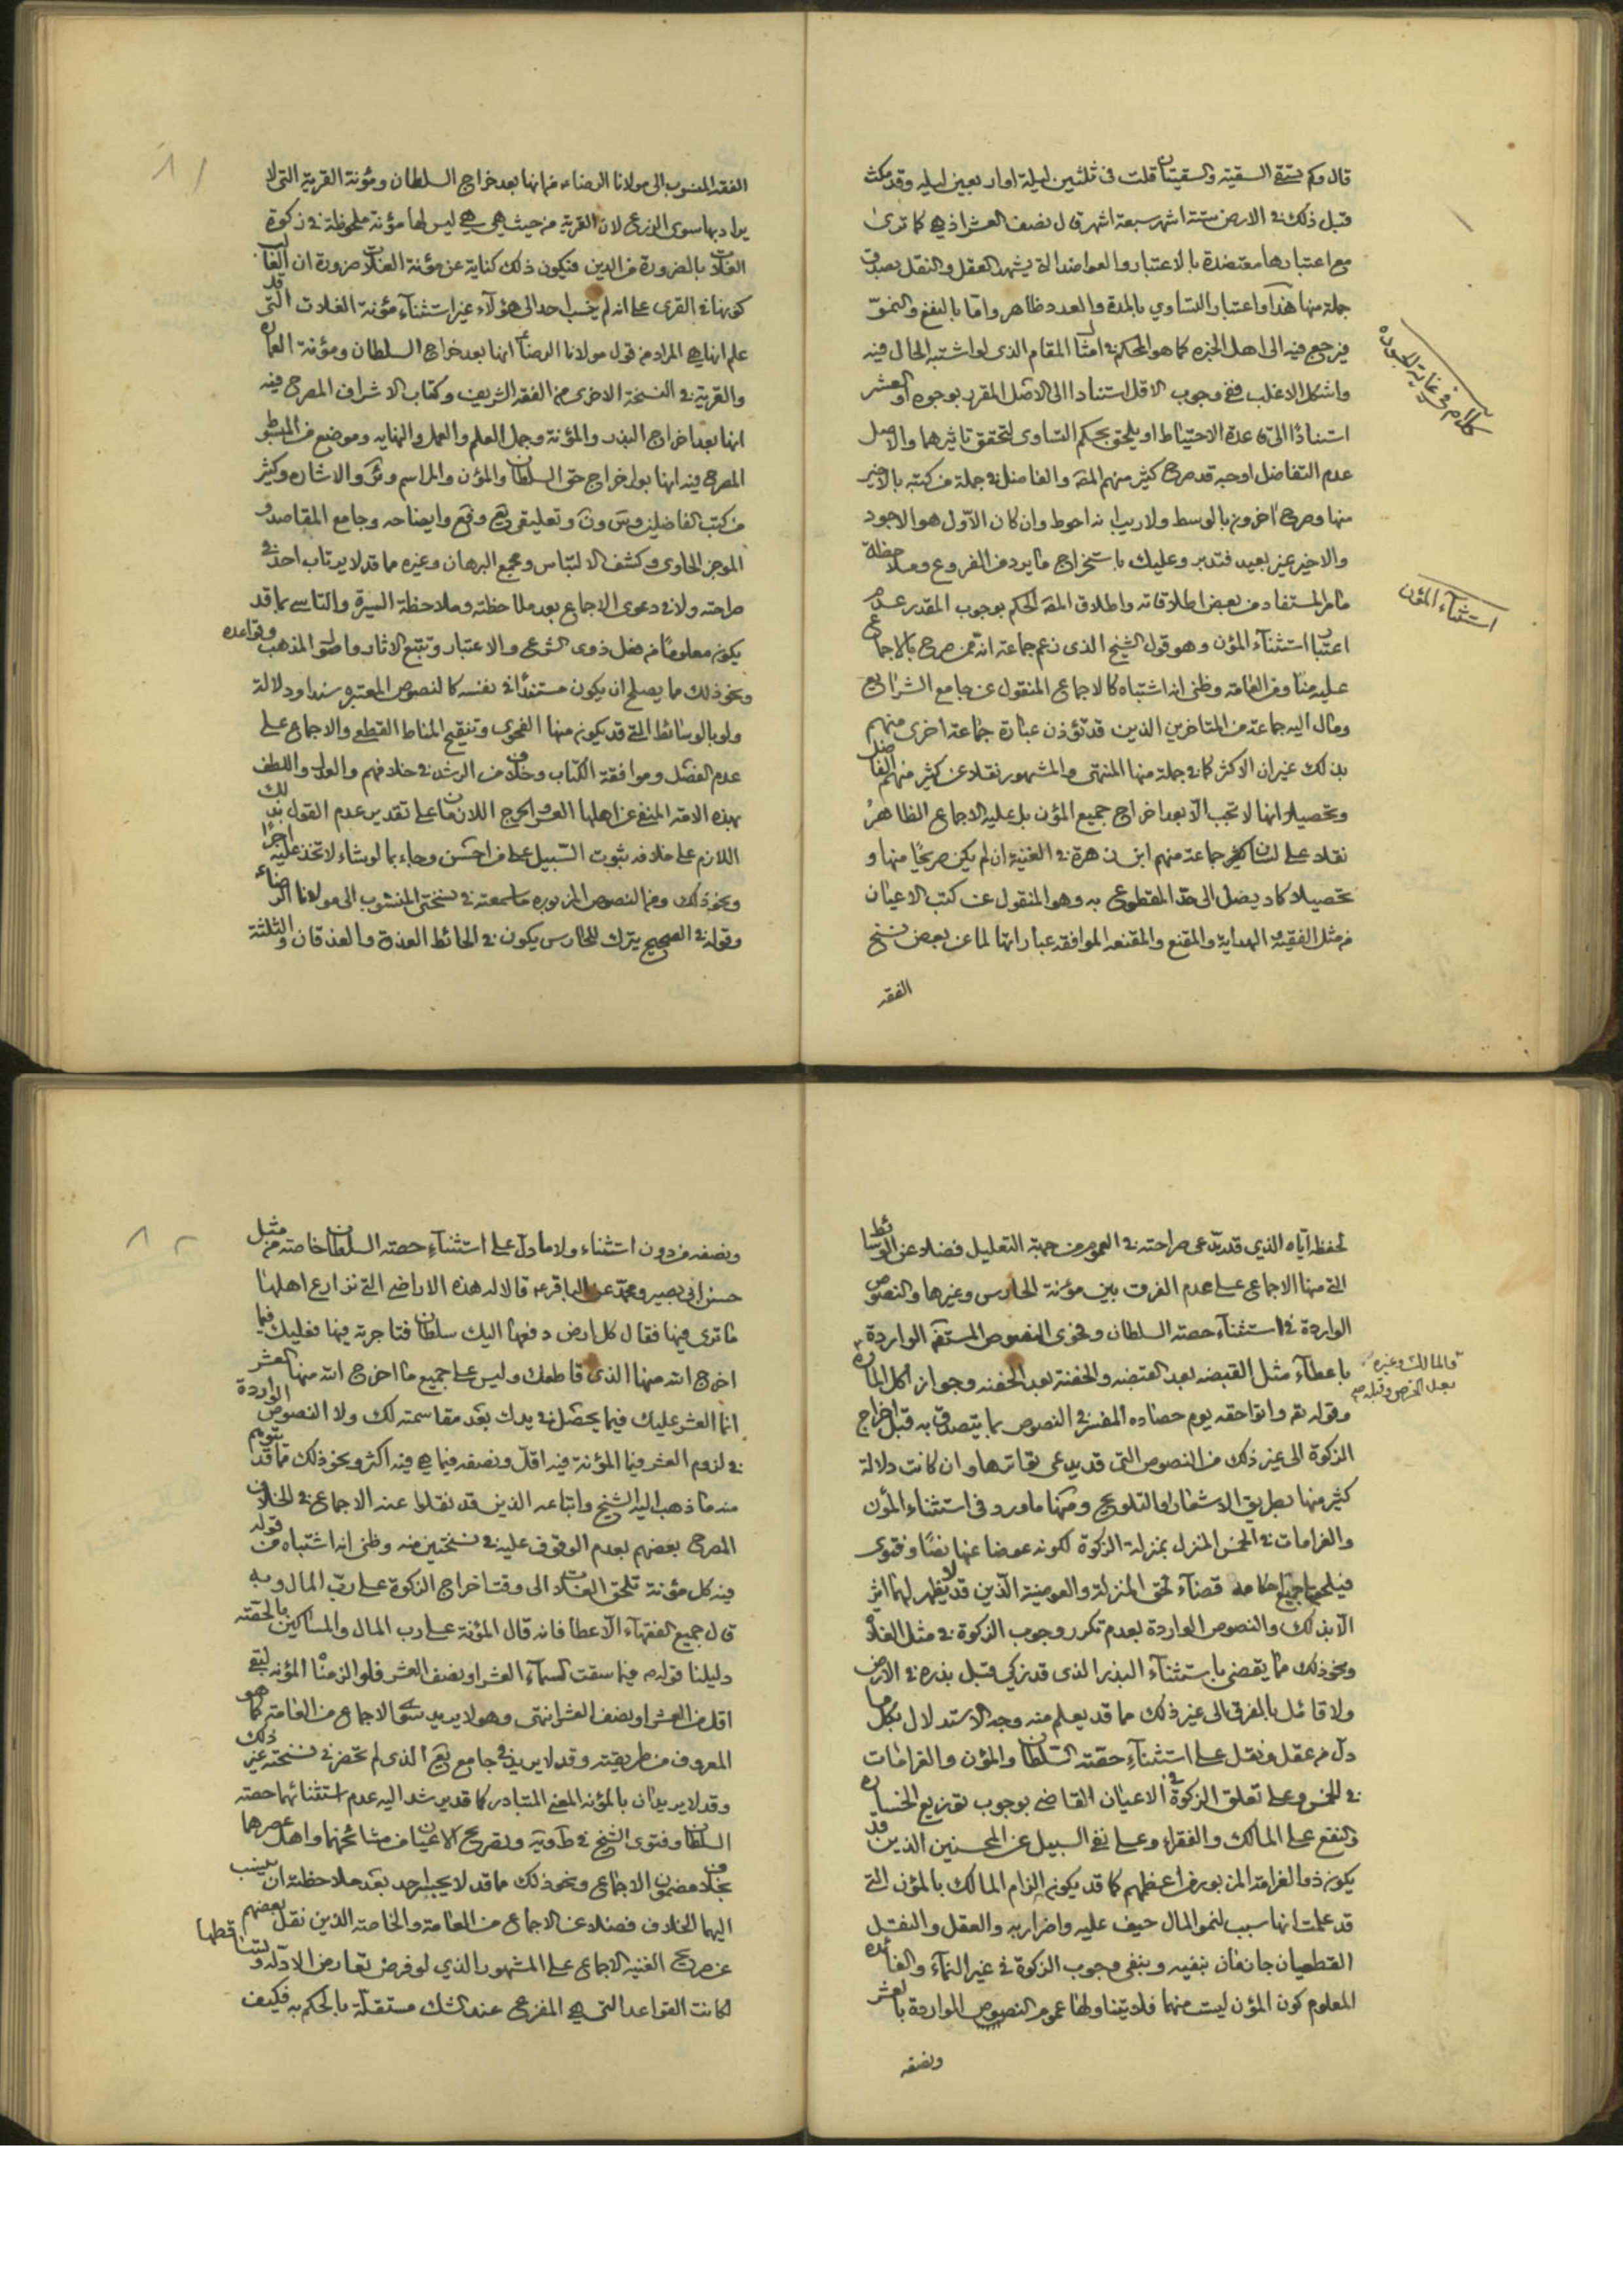 قال وكم تسقى السقية والسقيتان قلت في ثلثين ليلة او اربعين ليله وقد مكث
قبل ذلك في الارض ستة اشهر سبعة اشهر قال نصف العشر اذ هي كما ترى
مع اعتبارها معتضدة بالاعتبار والعواضد التي يشهد العقل والنقل بصدق
جملة منها هذا واعتبار التساوي بالمدة والعدد ظاهر واما بالنفع والنمو
فيرجع فيه الى اهل الخبره كما هو المحكم في امثال المقام الذى لو اشتبه الحال فيه
واشكل الاغلب ففي وجوب الاقل استنادا الى الاصل المقرر بوجوه او العشر
استنادًا الى قاعدة الاحتياط او يلحق بحكم التساوى لتحقق تاثيرهما والاصل
عدم التفاضل اوجه قد صرح كثير منهم المصه والفاضل في جملة من كتبه بالاخير
منها وصرح اخرون بالوسط ولا ريب انه احوط وان كان الاول هو الاجود
والاخير غير بعيد فتدبر وعليك باستخراج ما يرد من الفروع وملاحظة
ما مر المستفاد من بعض اطلاقاته واطلاق المصه الحكم بوجوب المقدر عدم
اعتبار استثناء المؤن وهو قول الشيخ الذى زعم جماعة انه ممن صرح بالاجماع
عليه منا ومن العامة وظني انه اشتباه كالاجماع المنقول عن جامع الشرائع
ومال اليه جماعة من المتاخرين الذين قد تؤذن عبارة جماعة اخرى منهم
بذلك غير ان الاكثر كما في جملة منها المنتهى والمشهور نقلا عن كثير منهم الفاضل
وتحصيلا انها لا تجب الا بعد اخراج جميع المؤن بل عليه الاجماع الظاهر
نقلا على لسان كثير جماعة منهم ابن زهرة في الغنية ان لم يكن صريحًا منها و
تحصيلا كاد يصل الى حد المقطوع به وهو المنقول عن كتب الاعيان
من مثل الفقيه والهداية والمقنع والمقنعه الموافقه عباراتها لما عن بعض نسخ
الفقه
كلام في غاية الجوده
استثناء المؤن
٨١
الفقه المنسوب الى مولانا الرضاء من انها بعد خراج السلطان ومؤنة القرية التي لا
يراد بها سوى الزرع لان القرية من حيث هي هي ليس لها مؤنة ملحوظة في زكوة
الغلات بالضرورة من الدين فيكون ذلك كناية عن مؤنة الغلات ضرورة ان الغالب
كونها في القرى على انه لم ينسب احد الى هؤلاء غير استثناء مؤنة الغلات التي قد
علم انها هي المراد من قول مولانا الرضا انها بعد خراج السلطان ومؤنة العمارة
والقرية في النسخة الاخرى من الفقه الشريف وكتاب الاشراف المصرح فيه
انها بعد اخراج البذر والمؤنة وجمل العلم والعمل والنهايه وموضع من المبسوط
المصرح فيه انها بعد اخراج حق السلطان والمؤن والمراسم وئر والاشاره وكثير
من كتب الفاضلين وس ون وتعليقي يع وفع وايضاحه وجامع المقاصد و
الموجز الحاوى وكشف الالتباس ومجمع البرهان وغيره مما قد لا يرتاب احد في
صراحته ولا في دعوى الاجماع بعد ملاحظته وملاحظة السيرة والتاسي بما قد
يكون معلومًا من فعل ذوى الشرع والاعتبار وتتبع الاثار واصول المذهب وقواعده
ونحو ذلك مما يصلح ان يكون مستندًا في نفسه كالنصوص المعتبره سندا ودلالة
ولو بالوسائط التي قد يكون منها الفحوى وتنقيح المناط القطعي والاجماع على
عدم الفصل وموافقة الكتاب وخلاف الرشد في خلافهم والعدل واللطف
بهذه الامة المنفي عن اهلها العسر والحرج اللازمان على تقدير عدم القول بذلك
اللازم على خلافه ثبوت السبيل على من احسن وجاء بما لو شاء لاتخذ عليه اجرًا
ونحو ذلك ومن النصوص المزبوره ما سمعته في نسختي المنسوب الى مولانا الرضاء
وقوله في الصحيح يترك للحارس يكون في الحائط العذق والعذقان والثلثة
لحفظه اياه الذي قد يدعى صراحته في العموم من جهة التعليل فضلا عن الوسائط
التي منها الاجماع على عدم الفرق بين مؤنة الحارس وغيرها والنصوص
الواردة في استثناء حصة السلطان وفحوى النصوص المستفه الواردة
باعطاء مثل القبضه بعد القبضه والحفنة بعد الحفنه وجواز اكل المارة
وقوله تع واتوا حقه يوم حصاده المفسر في النصوص بما يتصدق به قبل اخراج
الزكوة الى غير ذلك من النصوص التي قد يدعى تواترها وان كانت دلالة
كثير منها بطريق الاشعار او التلويح ومنها ما ورد في استثناء المؤن
والغرامات في الخمس المنزل بمنزلة الزكوة لكونه عوضا عنها نصًا وفتوى
فيلحقها جميع احكامه قضاء لحق المنزلة والعوضية الذين قد لا يظهر لهما اثر
الا بذلك والنصوص الواردة بعدم تكرر وجوب الزكوة في مثل الغلات
ونحو ذلك مما يقضي باستثناء البذر الذى قد زكي قبل بذره في الارض
ولا قائل بالفرق الى غير ذلك مما قد يعلم منه وجه الاستدلال بكل ما
دل من عقل ونقل على استثناء حصة السلطان والمؤن والغرامات
في الخمس وعلى تعلق الزكوة في الاعيان القاضي بوجوب توزيع الخساره
والنفع على المالك والفقراء وعلى نفي السبيل عن المحسنين الذين قد
يكون ذو الغرامة المزبوره من اعظمهم كما قد يكون الزام المالك بالمؤن التي
قد علمت انها سبب لنمو المال حيف عليه واضرار به والعقل والنقل
القطعيان جازمان بنفيه وبنفي وجوب الزكوة في غير النماء والفائده
المعلوم كون المؤن ليست منهما فلا يتناولها عموم النصوص الواردة بالعشر
ونصفه
والمالك وغيره
بعد الخرص وقبله صح
٨٢
ونصفه من دون استثناء ولا ما دل على استثناء حصة السلطان خاصة من مثل
حسن ابي بصير ومحمد عن الباقر ع قالا له هذه الاراضي التي نزارع اهلها
ما ترى فيها فقال كل ارض دفعها اليك سلطان فتاجرته فيها فعليك فيما
اخرج الله منها الذي قاطعك وليس على جميع ما اخرج الله منها العشر
انما العشر عليك فيما يحصل في يدك بعد مقاسمته لك ولا النصوص الواردة
في لزوم العشر فيما المؤنة فيه اقل ونصفه فيما هي فيه اكثر ونحو ذلك مما قد يتوهم
منه ما ذهب اليه الشيخ واتباعه الذين قد نقلوا عنه الاجماع في الخلاف
المصرح بعضهم بعدم الوقوف عليه في نسختين منه وظني انه اشتباه من قوله
فيه كل مؤنة تلحق الغلات الى وقت اخراج الزكوة على رب المال وبه
قال جميع الفقهاء الا عطا فانه قال المؤنة على رب المال والمساكين بالحصة
دليلنا قوله ص فيما سقت السماء العشر او نصف العشر فلو الزمنا المؤنه لبقي
اقل من العشر او نصف العشر انتهى وهو لا يريد سوى الاجماع من العامة كما هو
المعروف من طريقته وقد لا يريد في جامع يع الذى لم تحضرني نسخته غير ذلك
وقد لا يريدان بالمؤنة المعنى المتبادر كما قد يرشد اليه عدم استثنائهما حصة
السلطان وفتوى الشيخ في ط وية وتصريح الاعيان من مشائخهما واهل عصرهما
بخلاف مضمون الاجماع ونحو ذلك مما قد لا يجسر احد بعد ملاحظته ان ينسب
اليهما الخلاف فضلا عن الاجماع من العامة والخاصة الذين نقل بعضهم
عن صريح الغنيه الاجماع على المشهور الذي لو فرض تعارض الادلة وتساقطها
لكانت القواعد التي هي المفزع عند الشك مستقلة بالحكم به فكيف